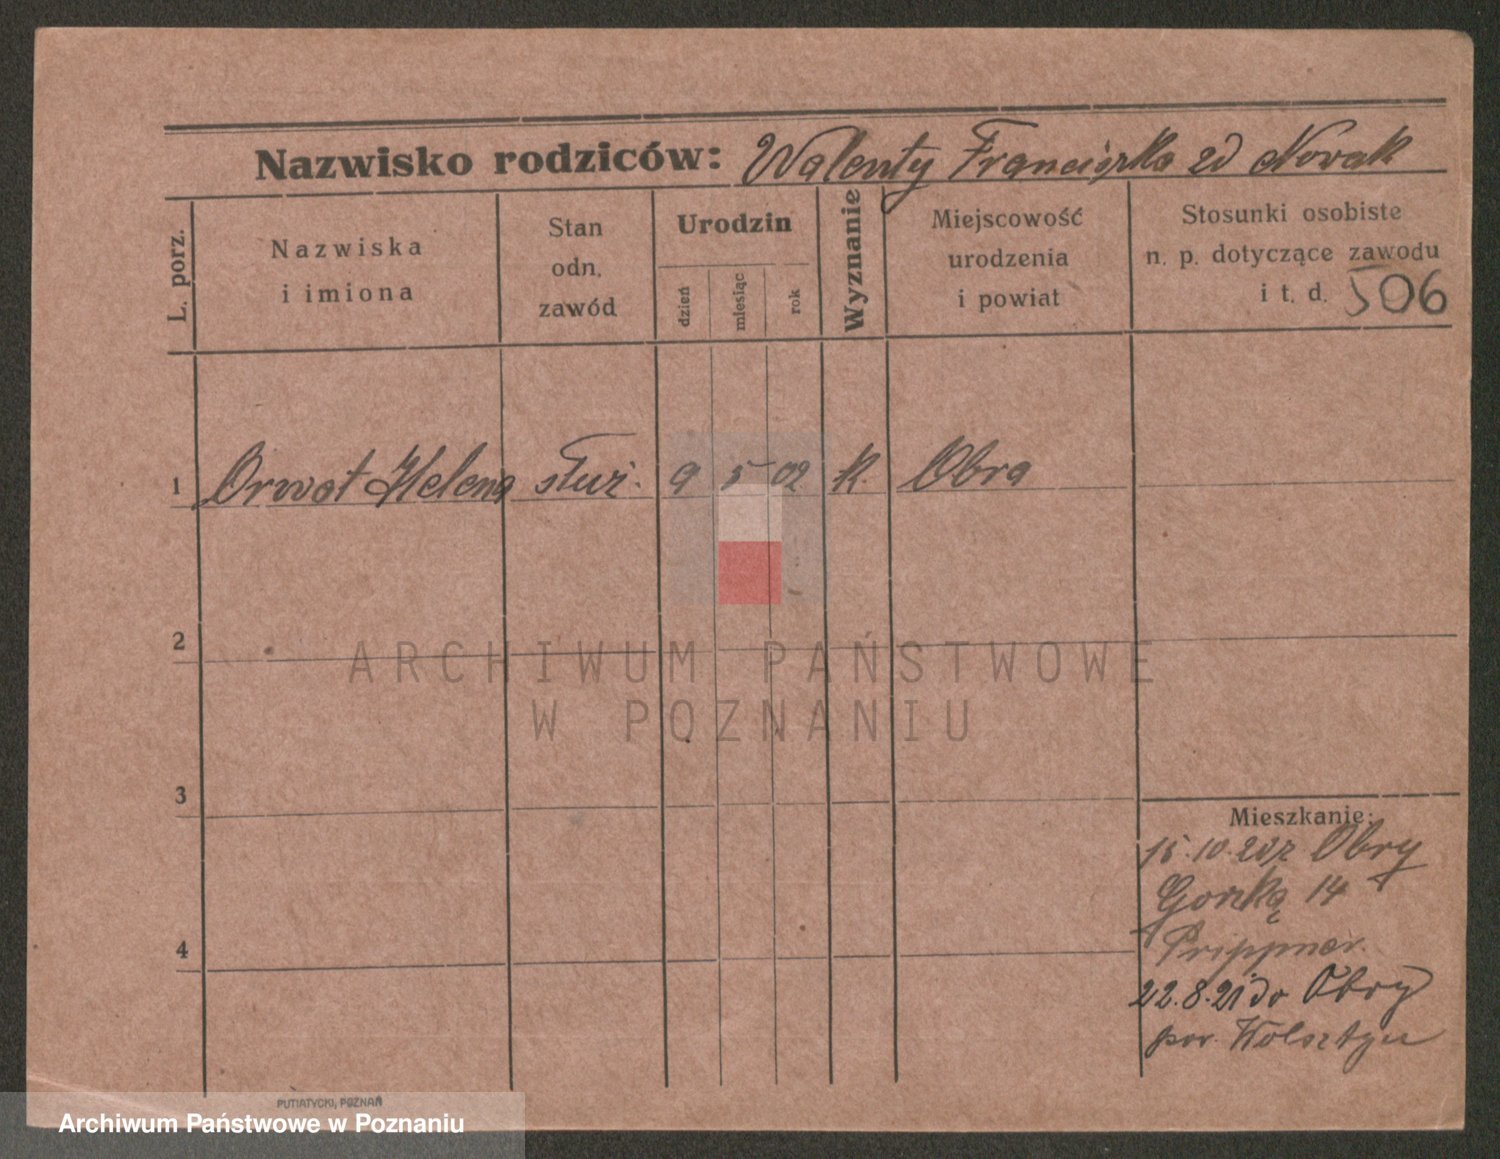 Nazwisko rodziców: Walenty Franciszka zd Novak
L. porz.
Nazwiska
i imiona
Stan
odn.
zawód
Urodzin
dzień
miesiąc
rok
Wyznanie
Miejscowość
urodzenia
i powiat
Stosunki osobiste
n. p. dotyczące zawodu
i t. d. 506
1 Orwat Helena służ. 9 5 02 K. Obra
2
3
4
Mieszkanie:
15.10.20 z Obry
Gorzką 14
22.8.21 do Obry
pow. Wolsztyn
PUTIATYCKI, POZNAŃ
ARCHIWUM PAŃSTWOWE
W POZNANIU
Archiwum Państwowe w Poznaniu